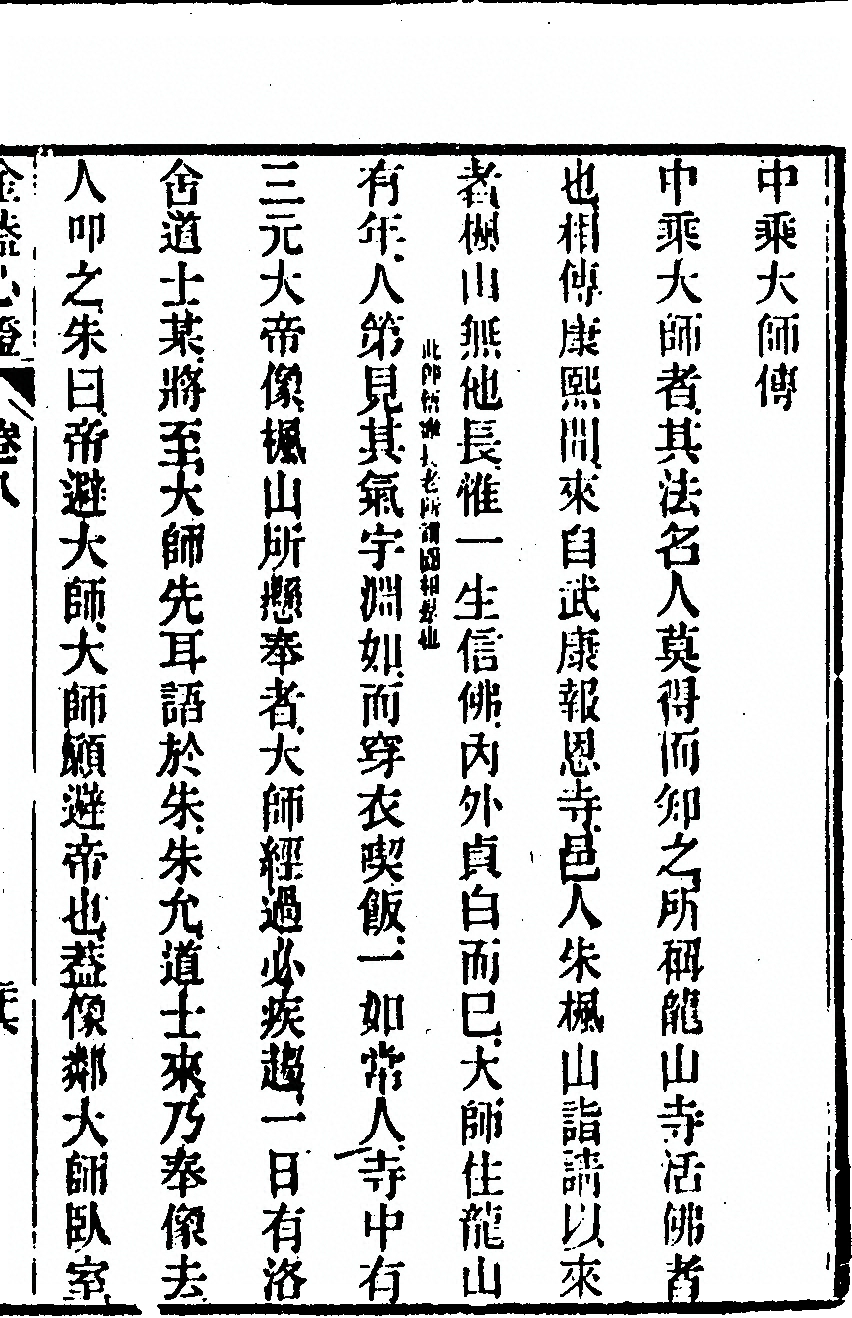 中乘大師傳
中乘大師者其法名人莫得而知之所稱龍山寺活佛者
也相傳康熙間來自武康報恩寺邑人朱楓山詣請以來
者楓山無他長惟一生信佛內外貞白而已大師住龍山
此卽悟
長老所謂
也
有年人第見其氣宇淵如而穿衣喫飯一如常人寺中有
三元大帝像楓山所懸奉者大師經過必疾趨一日有洛
舍道士某將至大師先耳語於朱朱允道士來乃奉像去
人叩之朱曰帝避大師大師願避帝也葢像鄰大師臥室
金葢心燈
卷八